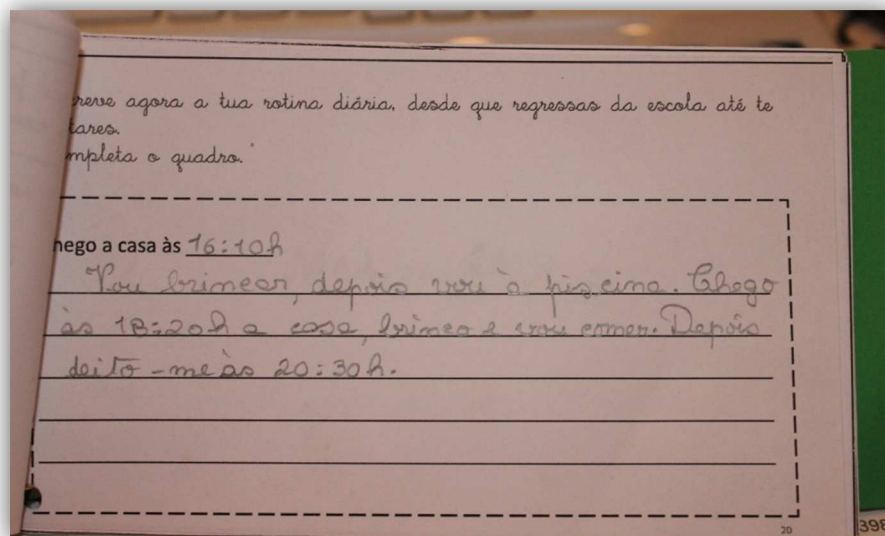 reve agora a tua rotina diária, desde que regressas da escola até te
tares.
mpleta o quadro.
hego a casa às 16:10h
Vou brincar, depois vou à piscina. Chego
às 18:20h a casa, brinco e vou comer. Depois
deito-me às 20:30h.
20
398